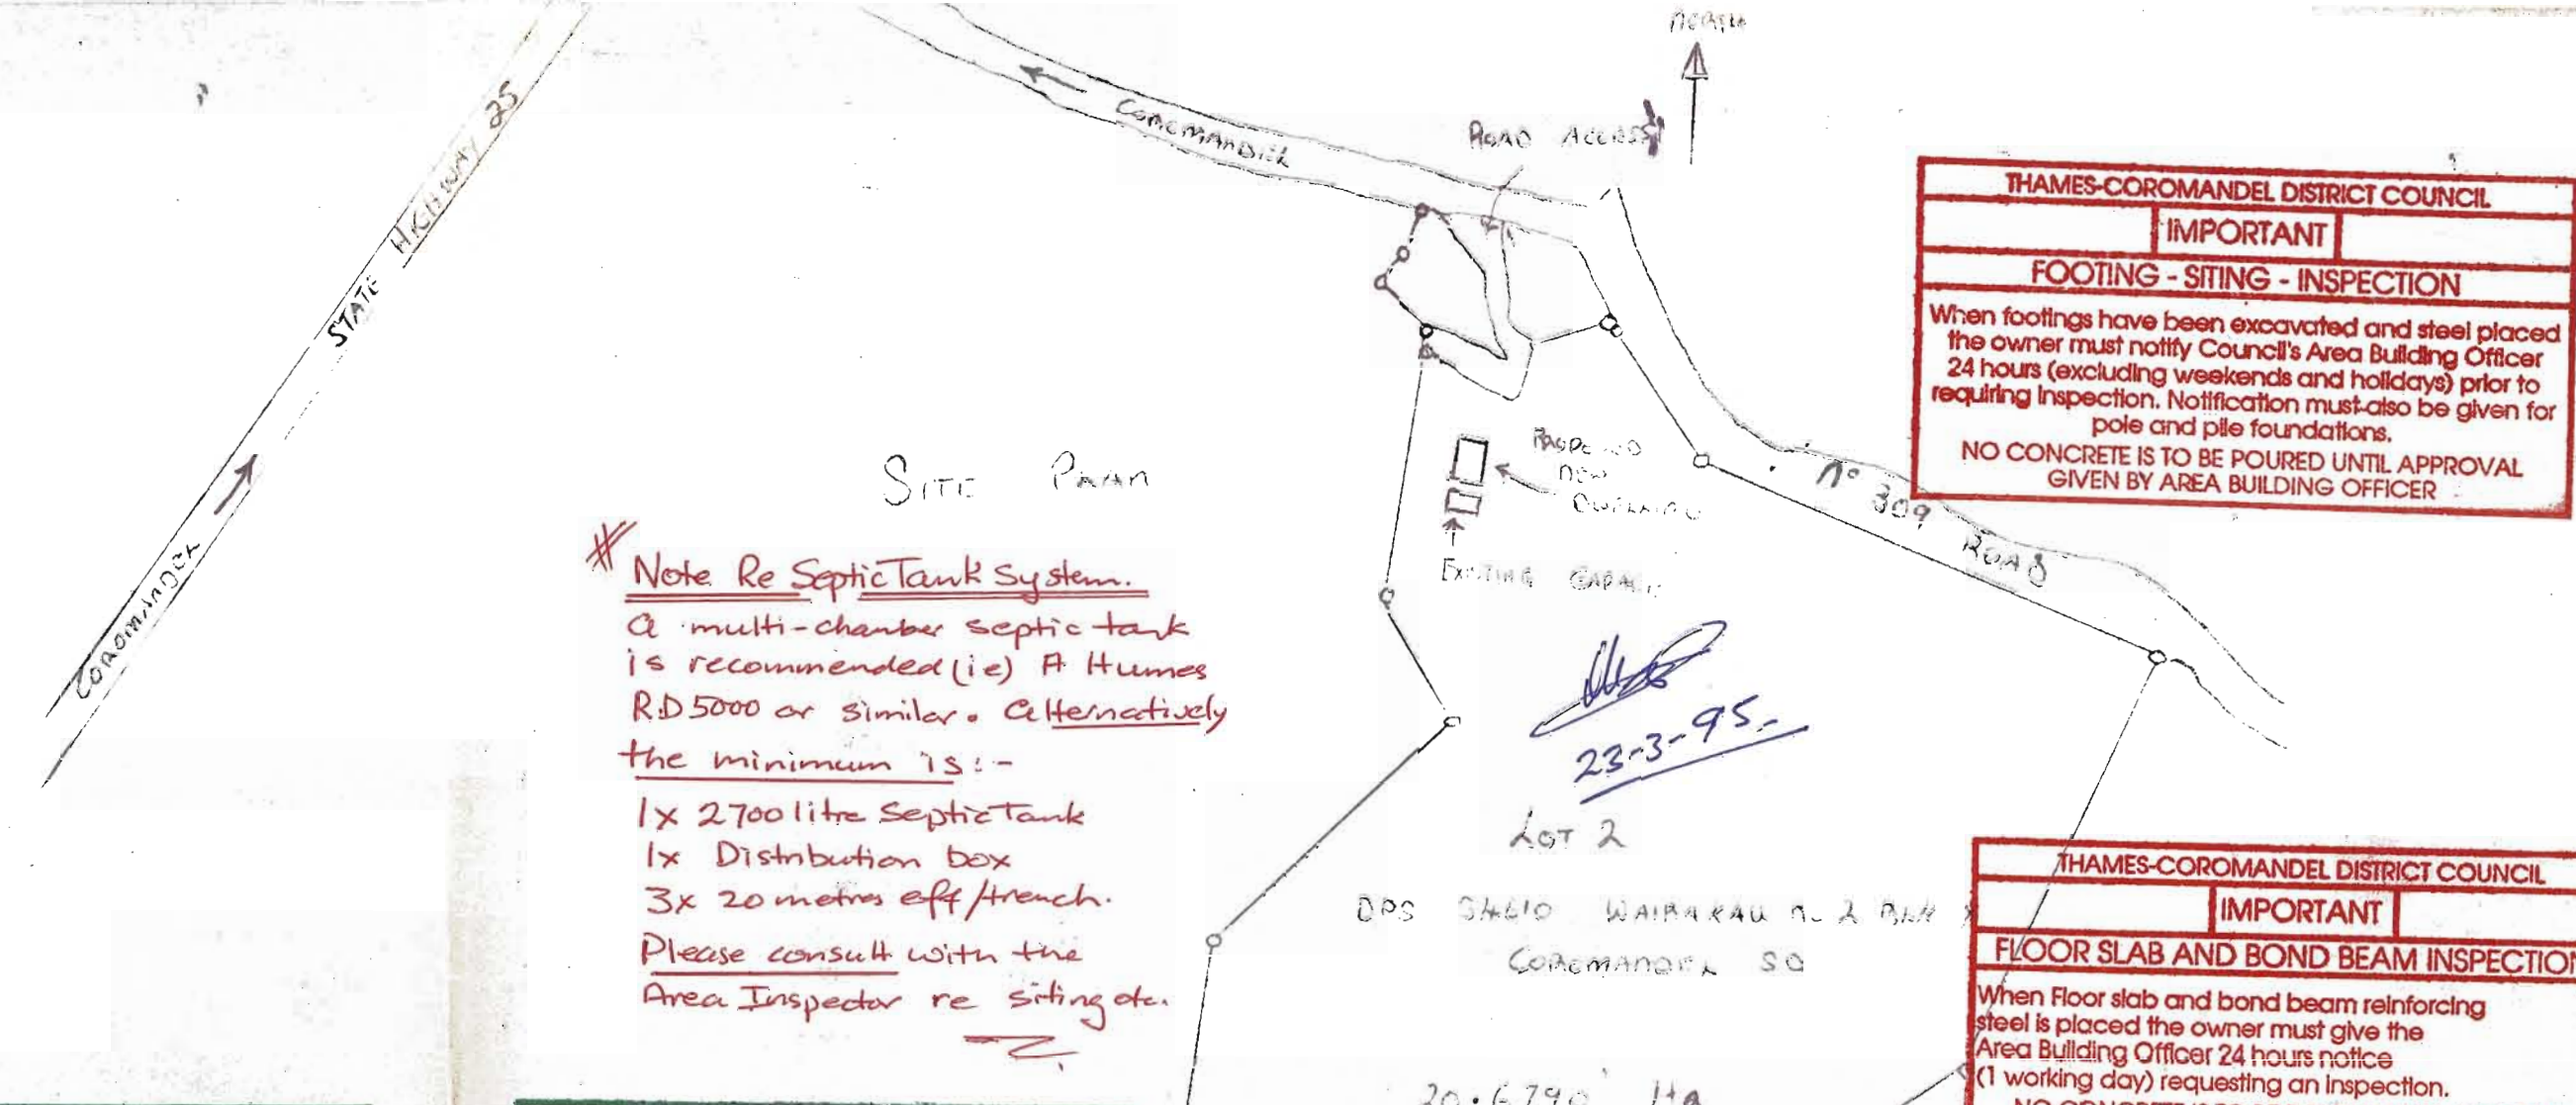 NORTH
STATE HIGHWAY 25
COROMANDEL
COROMANDEL
ROAD ACCESS
SITE PLAN
PROPOSED
NEW
DWELLING
EXISTING GARAGE
No 309 ROAD
# Note Re Septic Tank System.
A multi-chamber septic tank
is recommended (ie) A Humes
R.D 5000 or similar. Alternatively
the minimum is:-
1x 2700 litre Septic Tank
1x Distribution box
3x 20 metres eff/trench.
Please consult with the
Area Inspector re siting etc.
23-3-95.
LOT 2
DPS WAIRAKAU No 2 BLK
COROMANDEL SD
20.6790 Ha
THAMES-COROMANDEL DISTRICT COUNCIL
IMPORTANT
FOOTING - SITING - INSPECTION
When footings have been excavated and steel placed
the owner must notify Council's Area Building Officer
24 hours (excluding weekends and holidays) prior to
requiring inspection. Notification must also be given for
pole and pile foundations.
NO CONCRETE IS TO BE POURED UNTIL APPROVAL
GIVEN BY AREA BUILDING OFFICER
THAMES-COROMANDEL DISTRICT COUNCIL
IMPORTANT
FLOOR SLAB AND BOND BEAM INSPECTION
When Floor slab and bond beam reinforcing
steel is placed the owner must give the
Area Building Officer 24 hours notice
(1 working day) requesting an inspection.